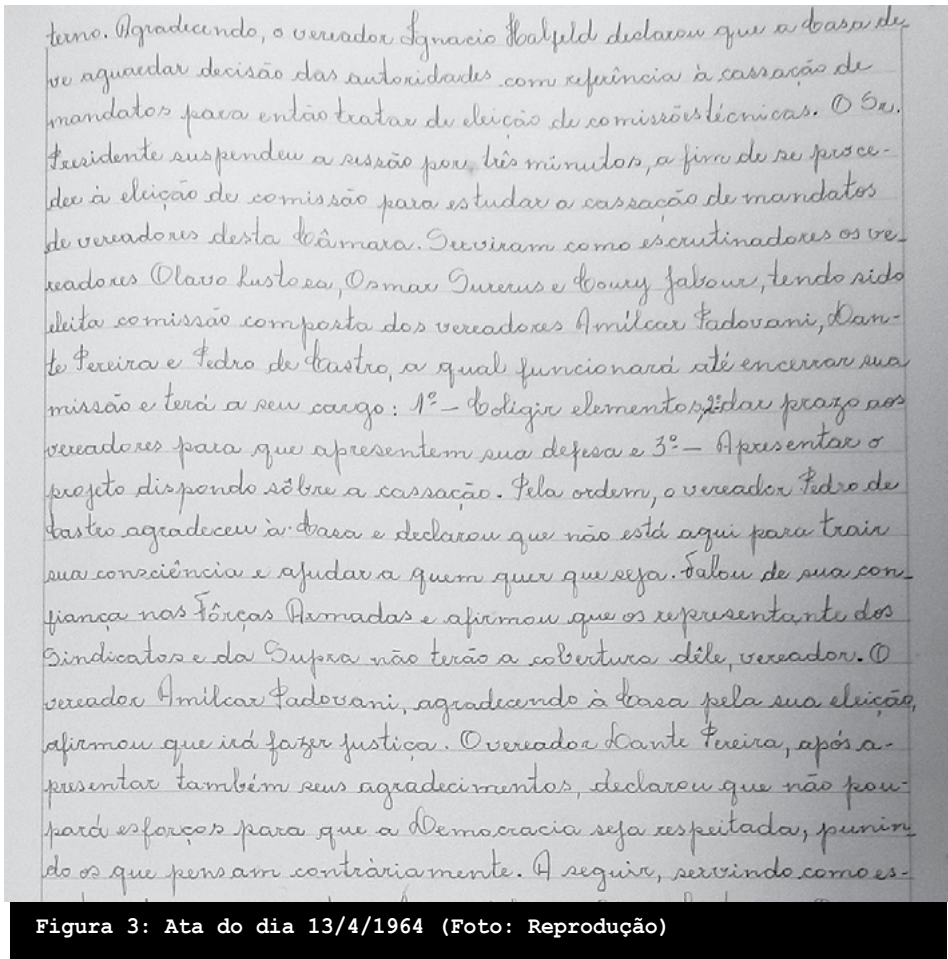 terno. Agradecendo, o vereador Ignacio Halfeld declarou que a Casa de-
ve aguardar decisão das autoridades com referência à cassação de
mandatos para então tratar de eleição de comissões técnicas. O Sr.
Presidente suspendeu a sessão por três minutos, a fim de se proce-
der à eleição de comissão para estudar a cassação de mandatos
de vereadores desta Câmara. Serviram como escrutinadores os ve-
readores Olavo Lustosa, Osmar Surerus e Coury Jabour, tendo sido
eleita comissão composta dos vereadores Amílcar Padovani, Dan-
te Pereira e Pedro de Castro, a qual funcionará até encerrar sua
missão e terá a seu cargo: 1º - Coligir elementos, 2º dar prazo aos
vereadores para que apresentem sua defesa e 3º - Apresentar o
projeto dispondo sôbre a cassação. Pela ordem, o vereador Pedro de
Castro agradeceu à Casa e declarou que não está aqui para trair
sua consciência e ajudar a quem quer que seja. Falou de sua con-
fiança nas Fôrças Armadas e afirmou que os representante dos
Sindicatos e da Supra não terão a cobertura dêle, vereador. O
vereador Amílcar Padovani, agradecendo à Casa pela sua eleição,
afirmou que irá fazer justiça. O vereador Dante Pereira, após a-
presentar também seus agradecimentos, declarou que não pou-
pará esforços para que a Democracia seja respeitada, punin-
do os que pensam contràriamente. A seguir, servindo como es-
Figura 3: Ata do dia 13/4/1964 (Foto: Reprodução)